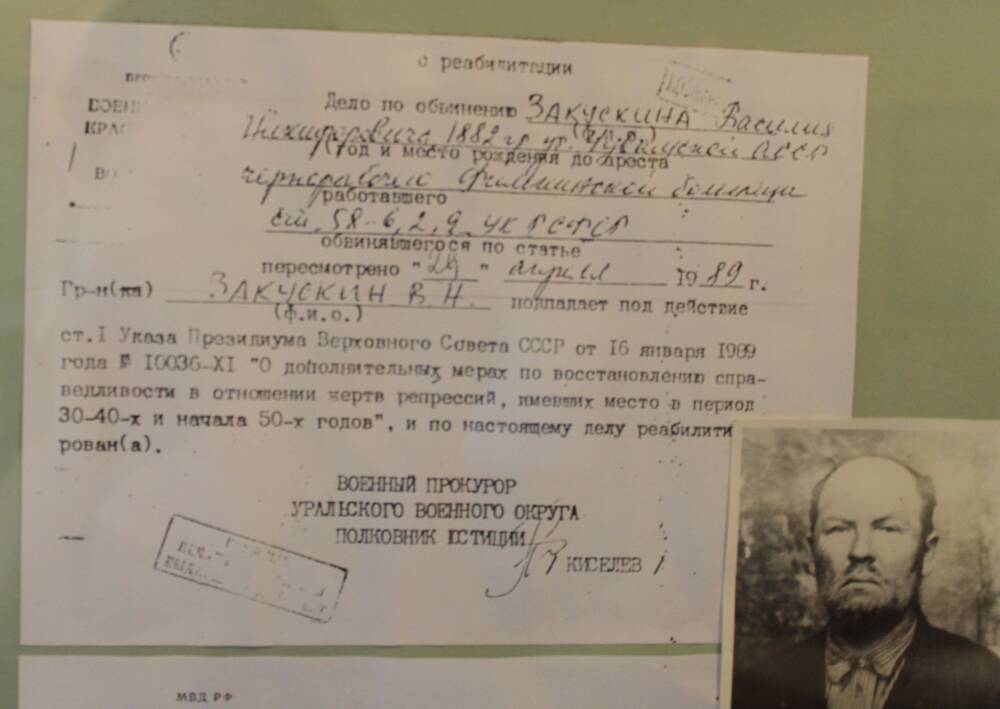 о реабилитации
ВОЕН
КРАС
Дело по обвинению ЗАКУСКИНА Василия
1882 гр ур. АССР
(год и место рождения до ареста
ВО
работавшего
ст. 58-6, 2, 9 УК РСФСР
обвинявшегося по статье
пересмотрено "29" апреля 1989 г.
Гр-н(ка) ЗАКУСКИН В.Н. подпадает под действие
(ф.и.о.)
ст.I Указа Президиума Верховного Совета СССР от 16 января 1989
года № I0036-XI "О дополнительных мерах по восстановлению спра-
ведливости в отношении жертв репрессий, имевших место в период
30-40-х и начала 50-х годов", и по настоящему делу реабилити
рован(а).
ВОЕННЫЙ ПРОКУРОР
УРАЛЬСКОГО ВОЕННОГО ОКРУГА
ПОЛКОВНИК ЮСТИЦИИ
КИСЕЛЕВ
МВД РФ